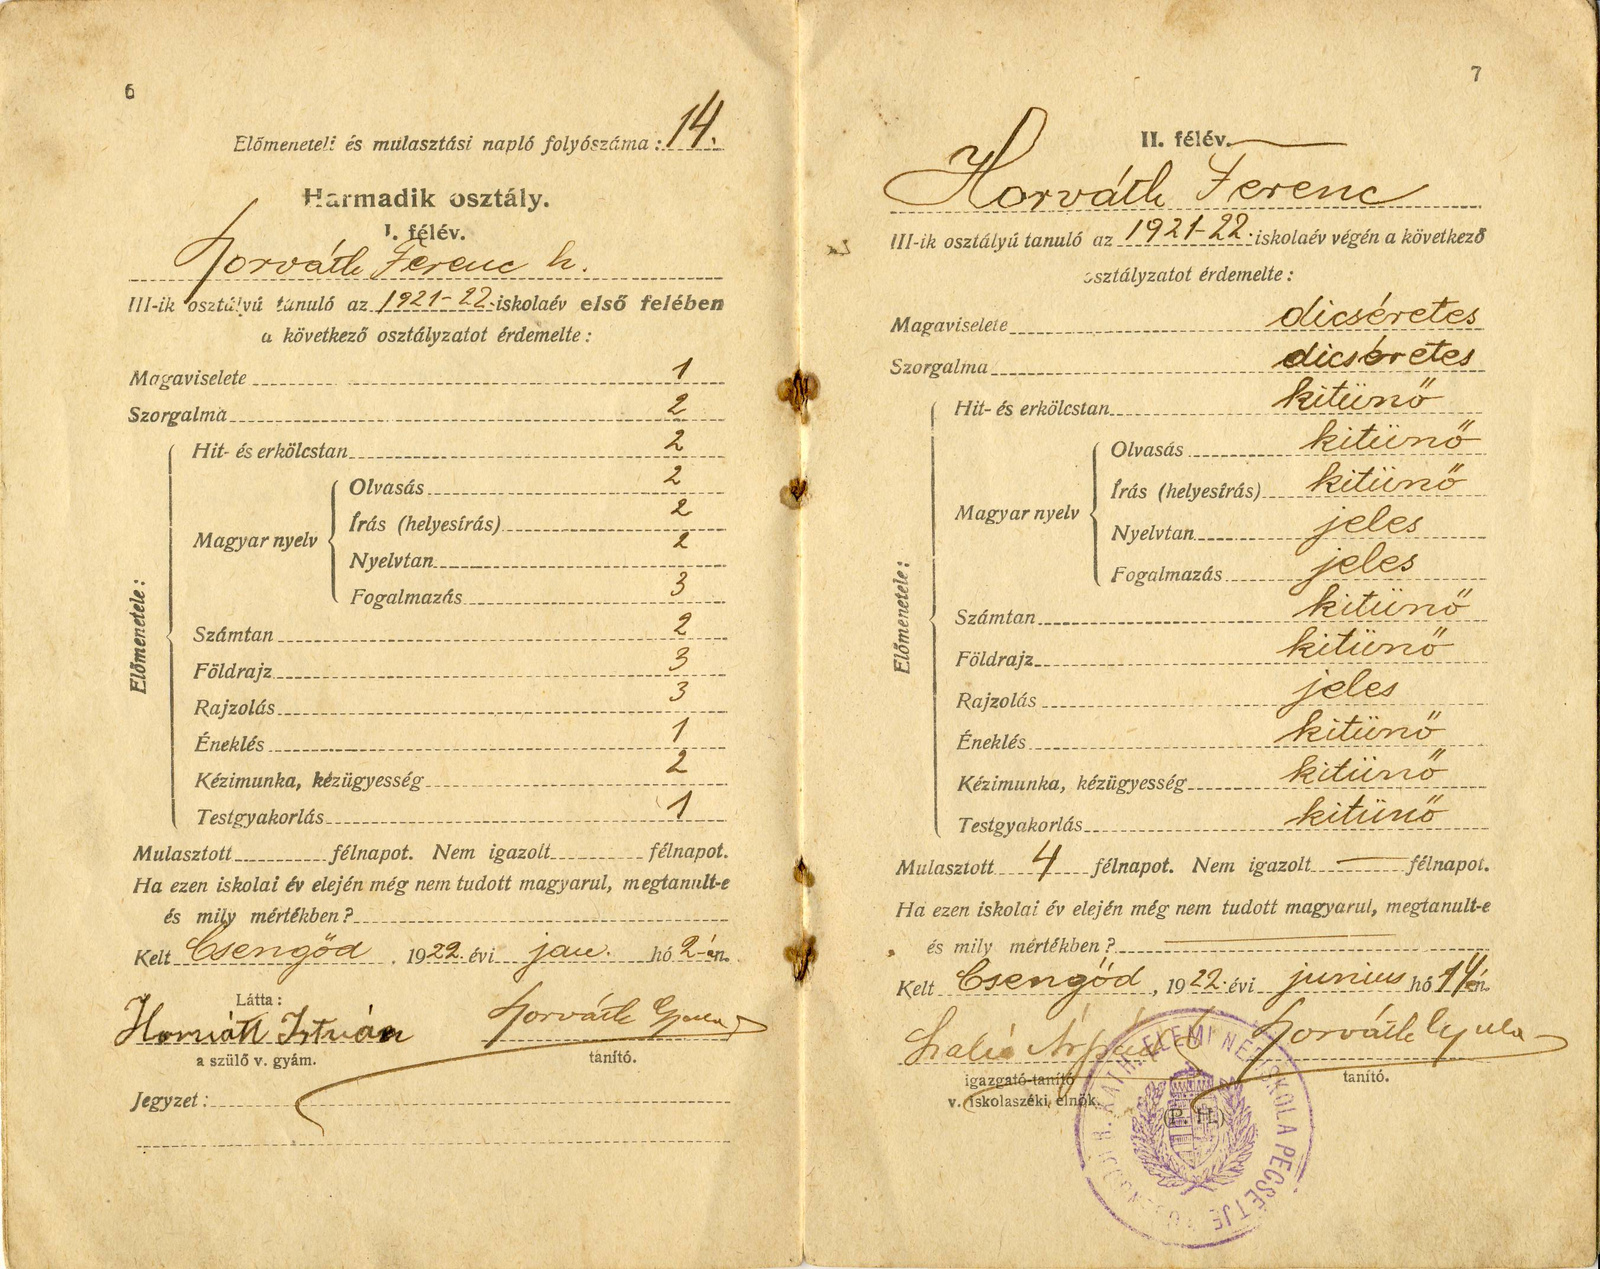 6
Előmeneteli és mulasztási napló folyószáma: 14.
Harmadik osztály.
I. félév.
Horváth Ferenc h.
III-ik osztályú tanuló az 1921-22. iskolaév első felében
a következő osztályzatot érdemelte:
Magaviselete 1
Szorgalma 2
Előmenetele:
Hit- és erkölcstan 2
Magyar nyelv
Olvasás 2
Írás (helyesírás) 2
Nyelvtan 2
Fogalmazás 3
Számtan 2
Földrajz 3
Rajzolás 3
Éneklés 1
Kézimunka, kézügyesség 2
Testgyakorlás 1
Mulasztott félnapot. Nem igazolt félnapot.
Ha ezen iskolai év elején még nem tudott magyarul, megtanult-e
és mily mértékben?
Kelt Csengőd, 1922. évi jan. hó 2-án.
Látta:
Horváth István Horváth Gyula
a szülő v. gyám. tanító.
Jegyzet:
7
II. félév.
Horváth Ferenc
III-ik osztályú tanuló az 1921-22. iskolaév végén a következő
osztályzatot érdemelte:
Magaviselete dicséretes
Szorgalma dicséretes
Előmenetele:
Hit- és erkölcstan kitünő
Magyar nyelv
Olvasás kitünő
Írás (helyesírás) kitünő
Nyelvtan jeles
Fogalmazás jeles
Számtan kitünő
Földrajz kitünő
Rajzolás jeles
Éneklés kitünő
Kézimunka, kézügyesség kitünő
Testgyakorlás kitünő
Mulasztott 4 félnapot. Nem igazolt — félnapot.
Ha ezen iskolai év elején még nem tudott magyarul, megtanult-e
és mily mértékben? —
Kelt Csengőd, 1922. évi junius hó 14én.
Árpád Horváth Gyula
igazgató-tanító tanító.
v. iskolaszéki elnök.
(P. H.)
R. KATH. ELEMI NÉPISKOLA PECSÉTJE